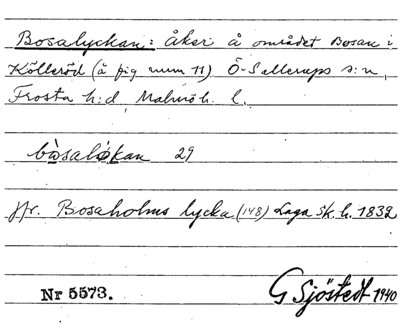 Bosalyckan: åker å området Bosan i
Källeröd (å fig num 11) Ö-Sallerups s:n,
Frosta h:d, Malmöh. l.
bòsalø̀kan 29
Jfr. Bosaholms lycka (148) Laga sk. h. 1832
Nr 5573. G Sjöstedt 1940